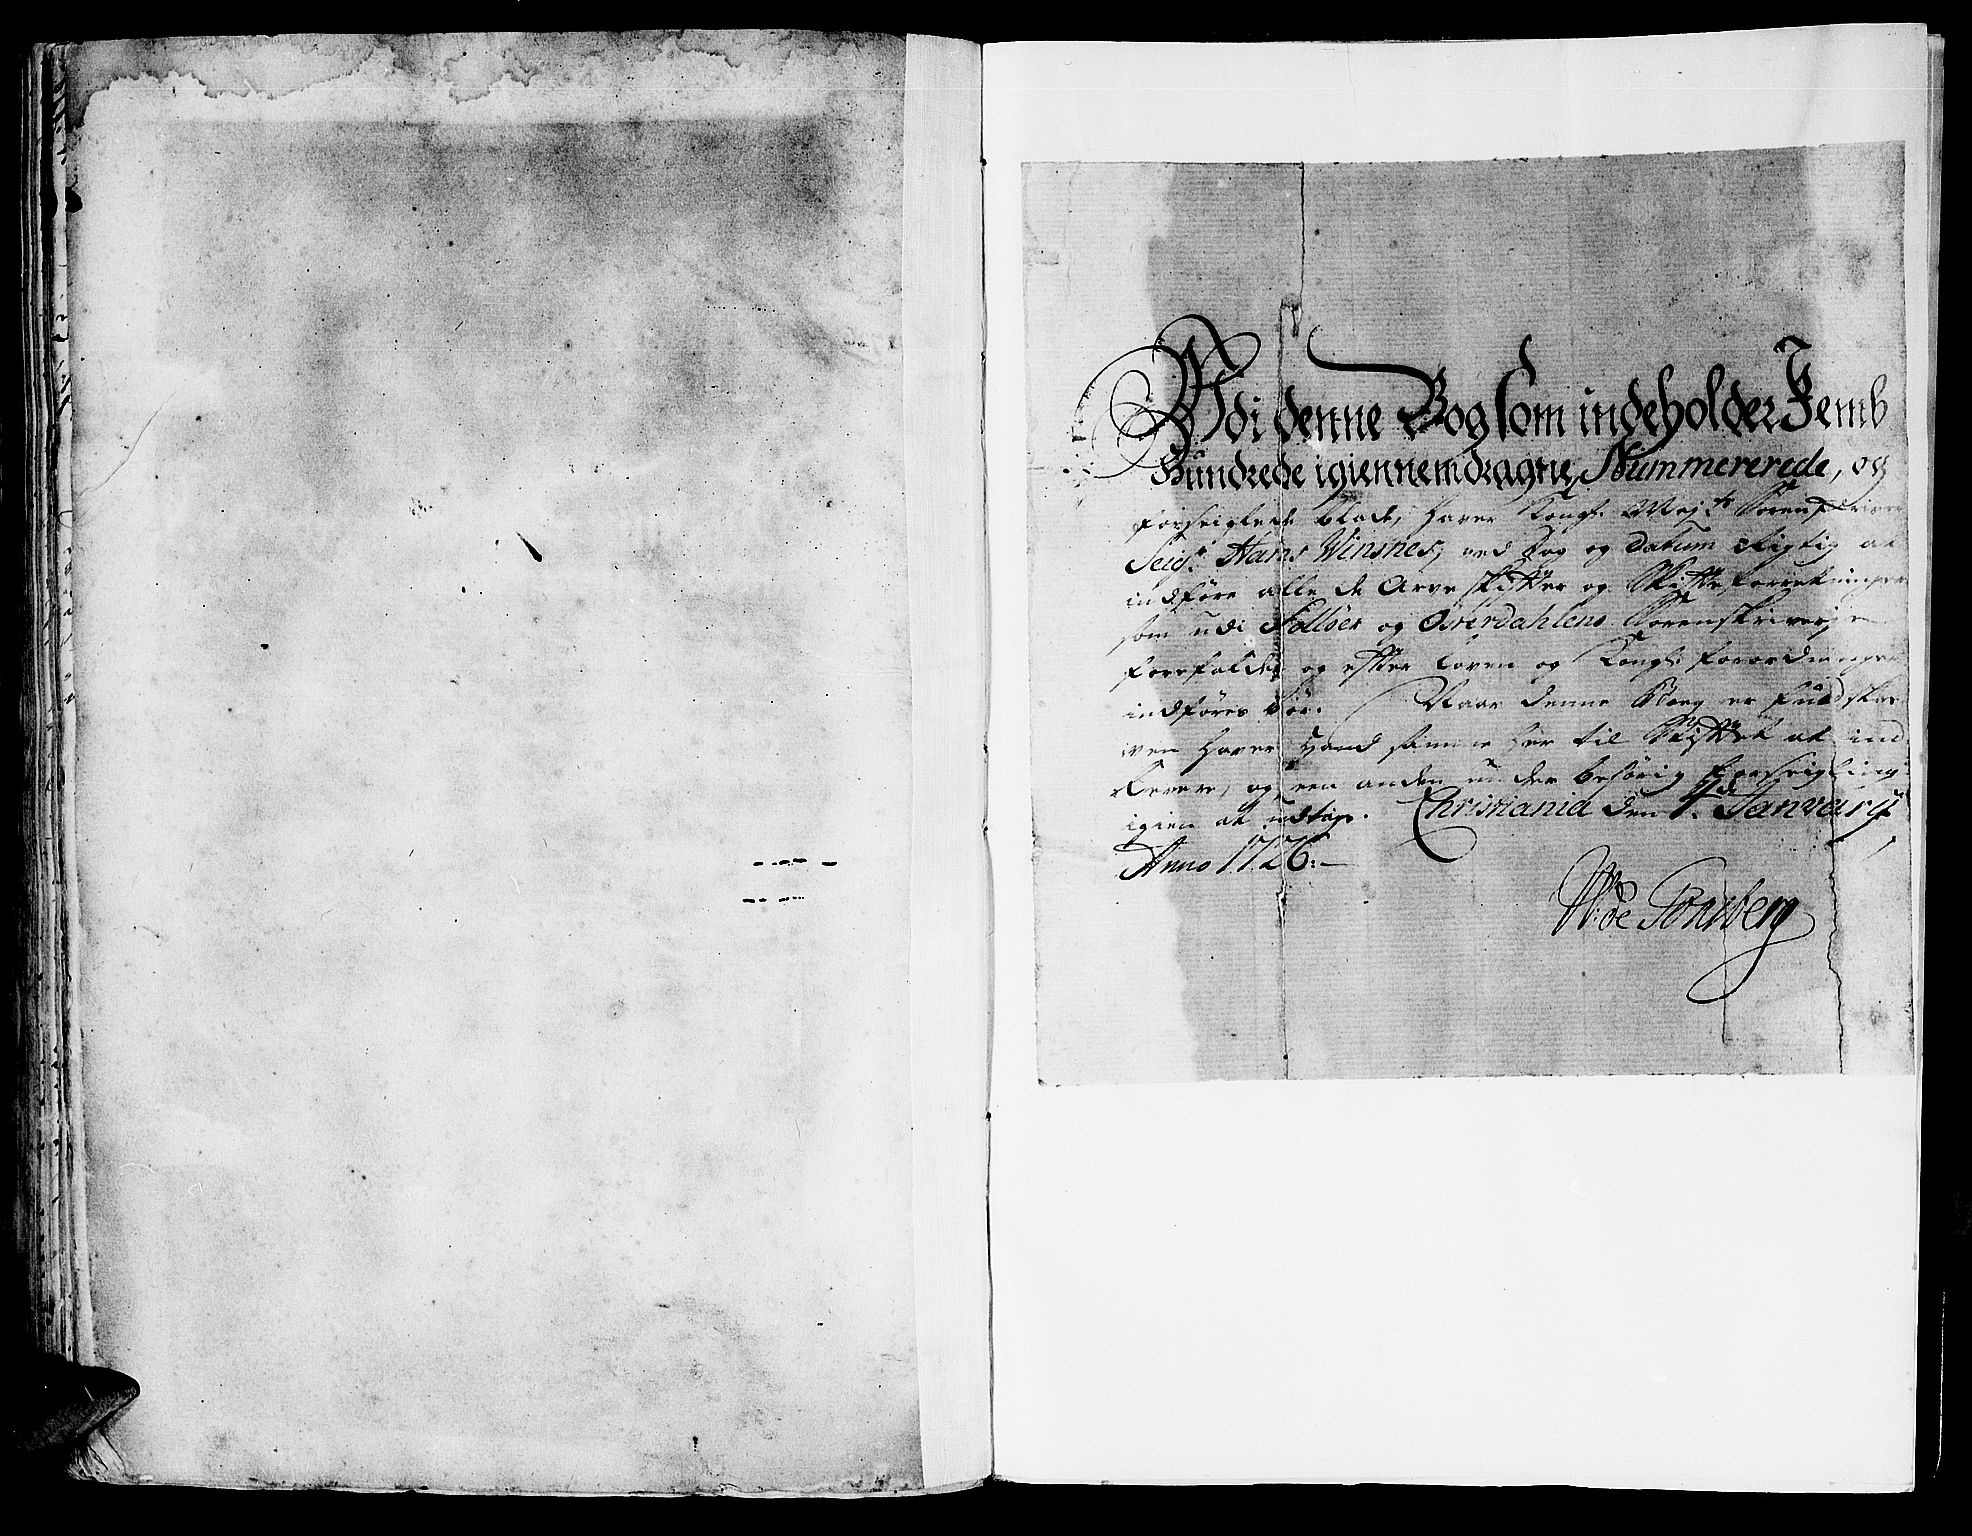 Udi denne Bog som indeholder Femb
Hundrede igiennemdragne, Nummererede, og
forseiglede blade, haver Kongl: May:ts Sorenskriver
Seig:r Hans Vinsnes, ved Dag og Datum Rigtig at
indføre alle de Arveskifter og Skifteforretninger
som udi Solløer og Østerdahlens Sorenskriverje
forefalder og efter Loven og Kongl: forordninger
indføres bør. Naar denne Bog er fuldskre
ven haver hand samme her til Stiftet at ind
levere, og een anden under behørig forseigling
igien at udtage. Christiania den 4de Januarij
Anno 1726:
W: de Tonsberg